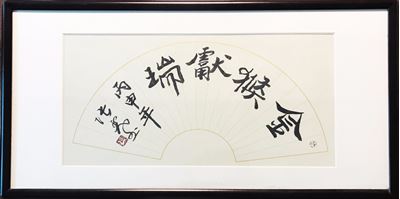 金猴獻瑞
丙申年